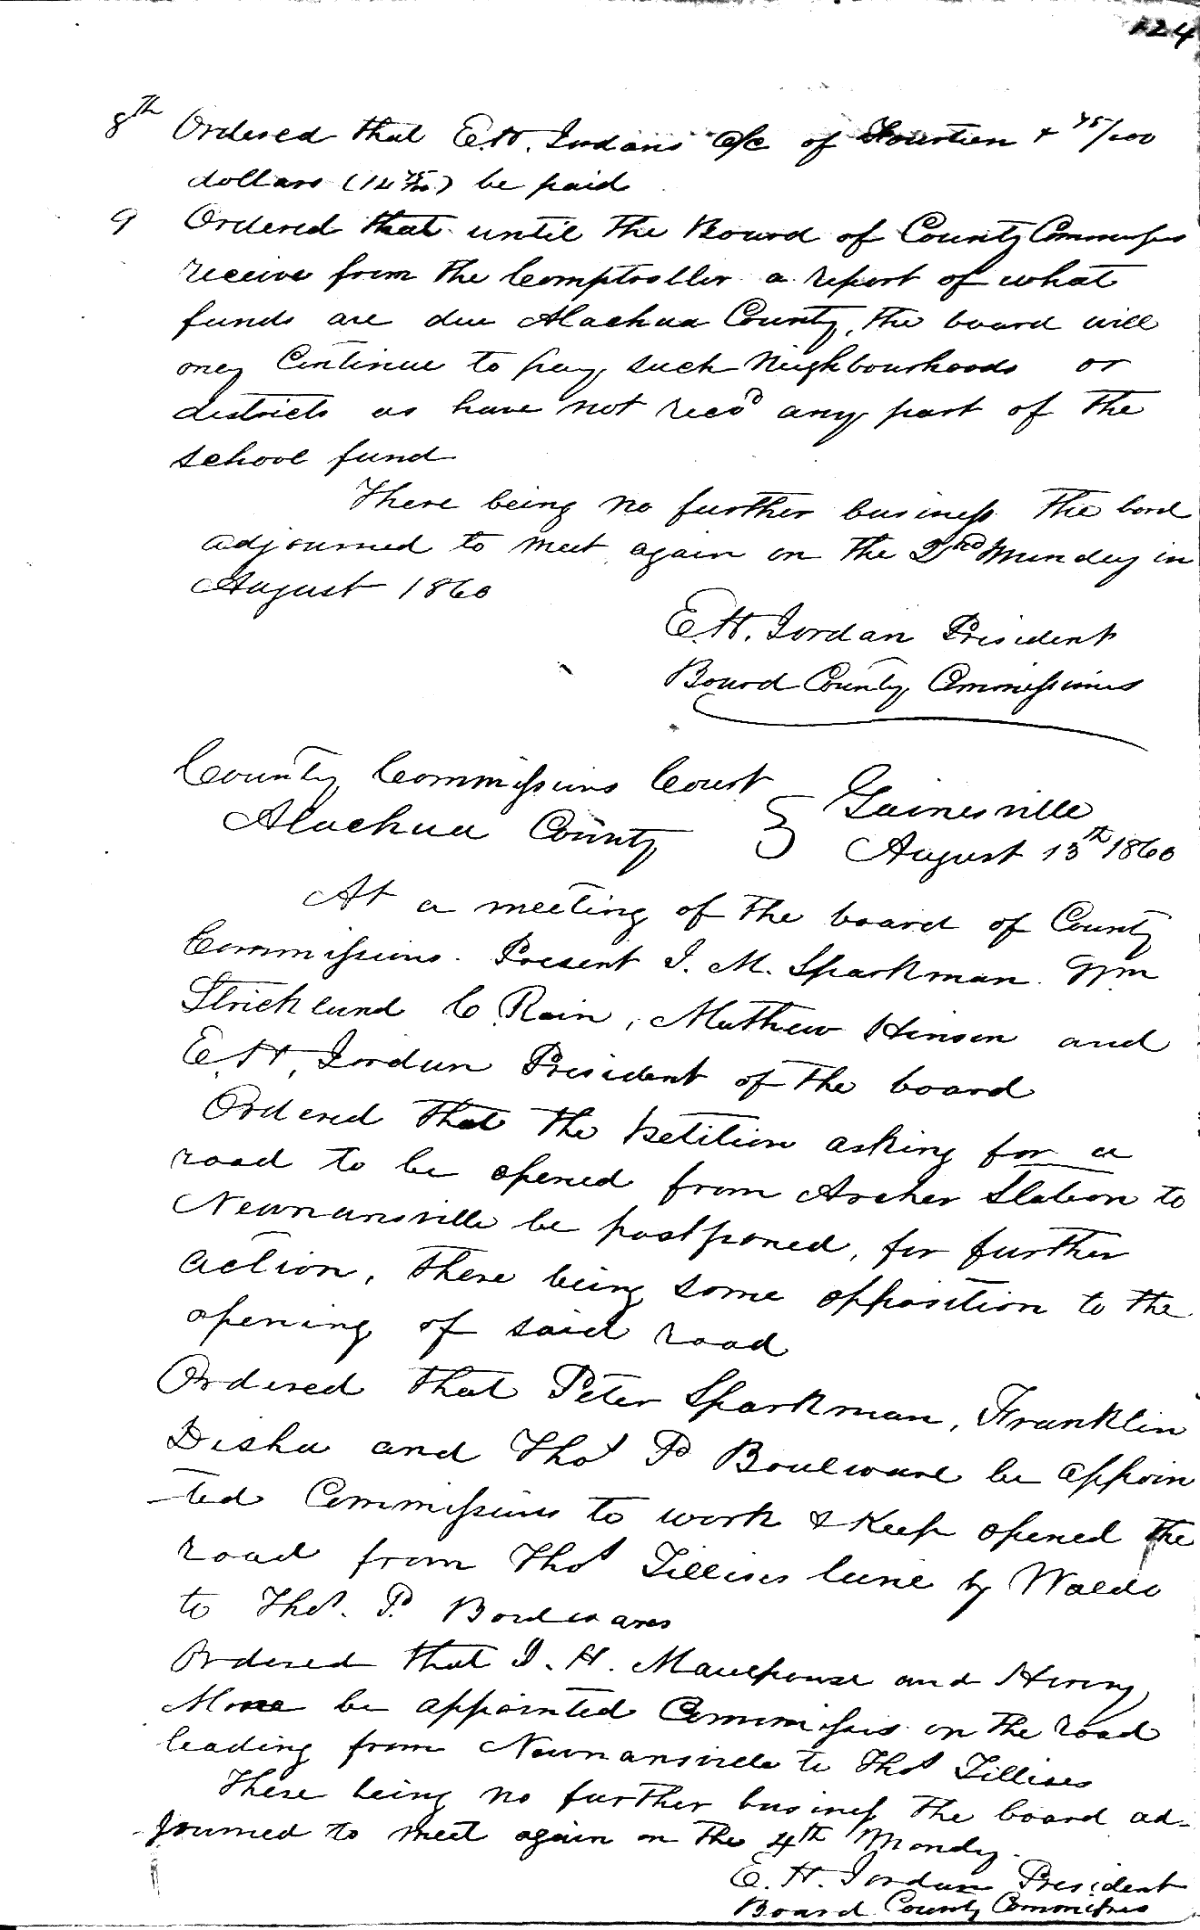 124
8th Ordered that E.H. Jordans a/c of Fourteen & 75/100
dollars (14 75/100) be paid
9 Ordered that until the Board of County Commissrs
receive from the Comptroller a report of what
funds are due Alachua County, the board will
only Continue to pay such Neighbourhoods or
districts as have not recd any part of the
school fund
There being no further business the bord
adjourned to meet again on the 2nd Monday in
August 1860
E.H. Jordan President
Board County Commissioners
County Commissions Court } Gainesville
Alachua County August 13th 1860
At a meeting of the board of County
Commissions. Present J. M. Sparkman. Wm
Strickland C. Rain, Mathew Hinson and
E.H. Jordan President of the board
Ordered that the petition asking for a
road to be opened from Archer Station to
Newnansville be postponed, for further
action, there being some opposition to the
opening of said road
Ordered that Peter Sparkman, Franklin
Disha and Thos P Boulware be appoin
-ted Commissions to work & keep opened the
road from Thos Tillises lane by Waldo
to Thos. P. Boulwares
Ordered that J. H. and Henry
More be appointed Commissrs on the road
leading from Newnansville to Thos Tillises
There being no further business the board ad-
journed to meet again on the 4th Mondy.
E. H. Jordan President
Board County Commissrs